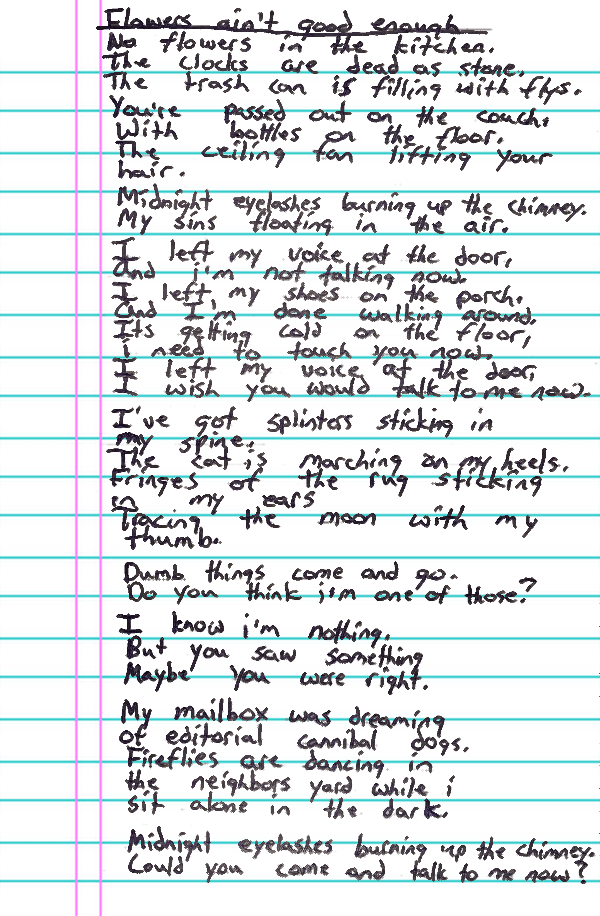 Flowers ain't good enough
No flowers in the kitchen.
The clocks are dead as stone.
The trash can is filling with flys.
You're passed out on the couch.
With bottles on the floor.
The ceiling fan lifting your
hair.
Midnight eyelashes burning up the chimney.
My sins floating in the air.
I left my voice at the door,
and i'm not talking now.
I left my shoes on the porch.
and I'm done walking around.
Its getting cold on the floor,
i need to touch you now.
I left my voice at the door,
I wish you would talk to me now.
I've got splinters sticking in
my spine.
The cat is marching on my heels.
Fringes of the rug sticking
in my ears
Tracing the moon with my
thumb.
Dumb things come and go.
Do you think i'm one of those?
I know i'm nothing.
But you saw something
Maybe you were right.
My mailbox was dreaming
of editorial cannibal dogs.
Fireflies are dancing in
the neighbors yard while i
sit alone in the dark.
Midnight eyelashes burning up the chimney.
Could you come and talk to me now?